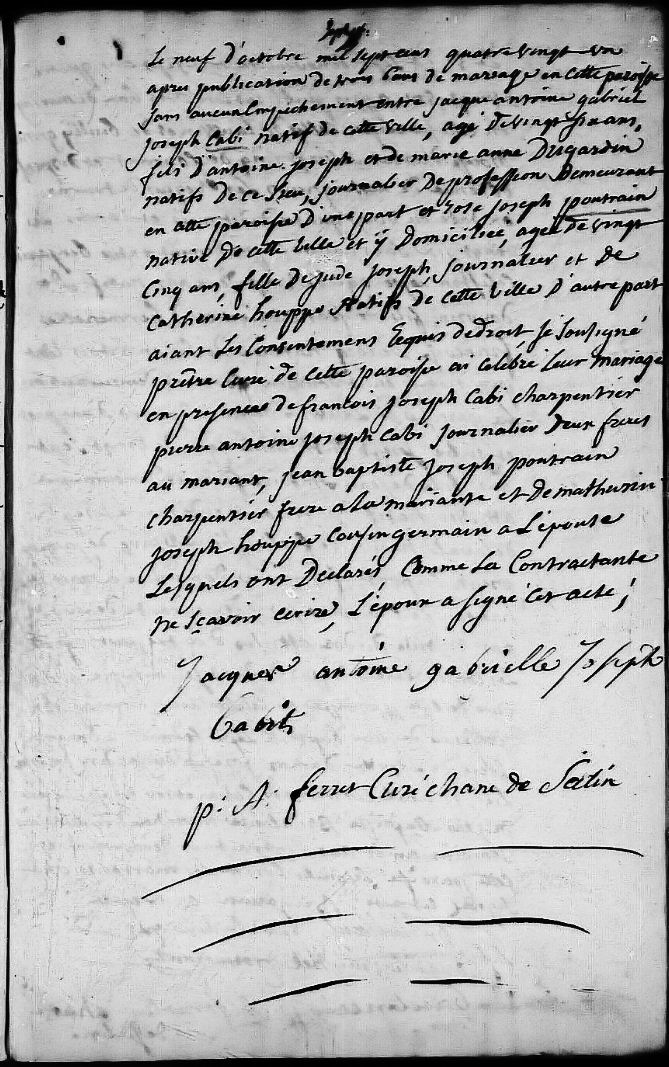 Le neuf d'octobre mil sept cent quatre vingt un
apres publication de trois bans de mariage en cette paroisse
sans aucun Empechement entre jacque antoine gabriel
joseph Cabi natif de cette ville, agé de vingt six ans,
fils d'antoine joseph et de marie anne Dugardin
natifs de ce lieu, journalier de profession Demeurant
en cette paroisse D'une part et rose joseph poutrain
native de cette ville et y Domiciliée, agée de vingt
Cinq ans, fille de jude joseph, journalier et de
Catherine houppe Natifs de cette ville D'autre part
aiant les Consentemens Requis de droit je sousigné
prêtre Curé de cette paroise ai celebré leur mariage
en presence de francois joseph Cabi charpentier
pierre antoine joseph Cabi journalier deux freres
au mariant, jean baptiste joseph poutrain
charpentier frere a la mariante et de mathurin
joseph houppe Cousin germain a L'épouse
Lesquels ont Declarés, Comme La Contractante
ne sçavoir ecrire, L'époux a signé cet acte;
Jacques antoine gabrielle Joseph
Cabit
p. A. ferret Curé chane de Seclin